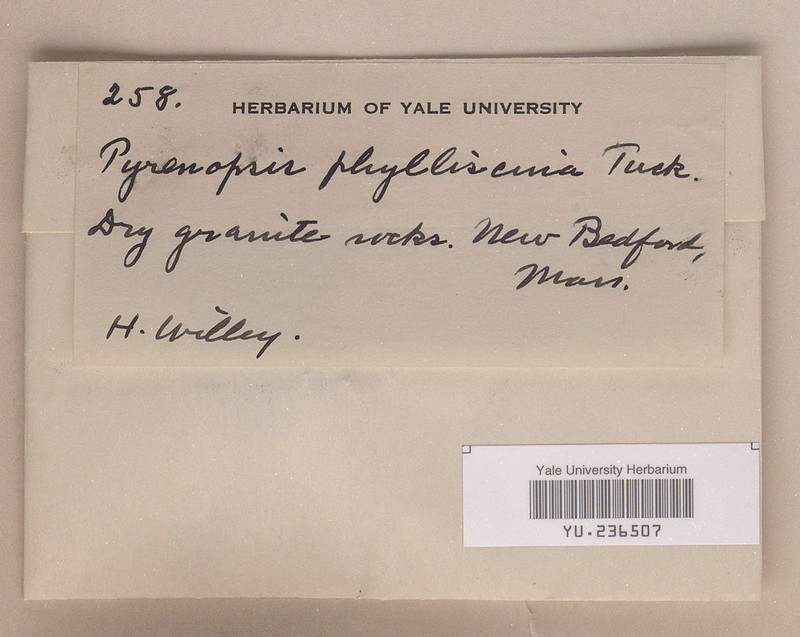 258.
HERBARIUM OF YALE UNIVERSITY
Pyrenopsis phylliscina Tuck.
Dry granite rocks. New Bedford,
Mass.
H. Willey.
Yale University Herbarium
YU.236507